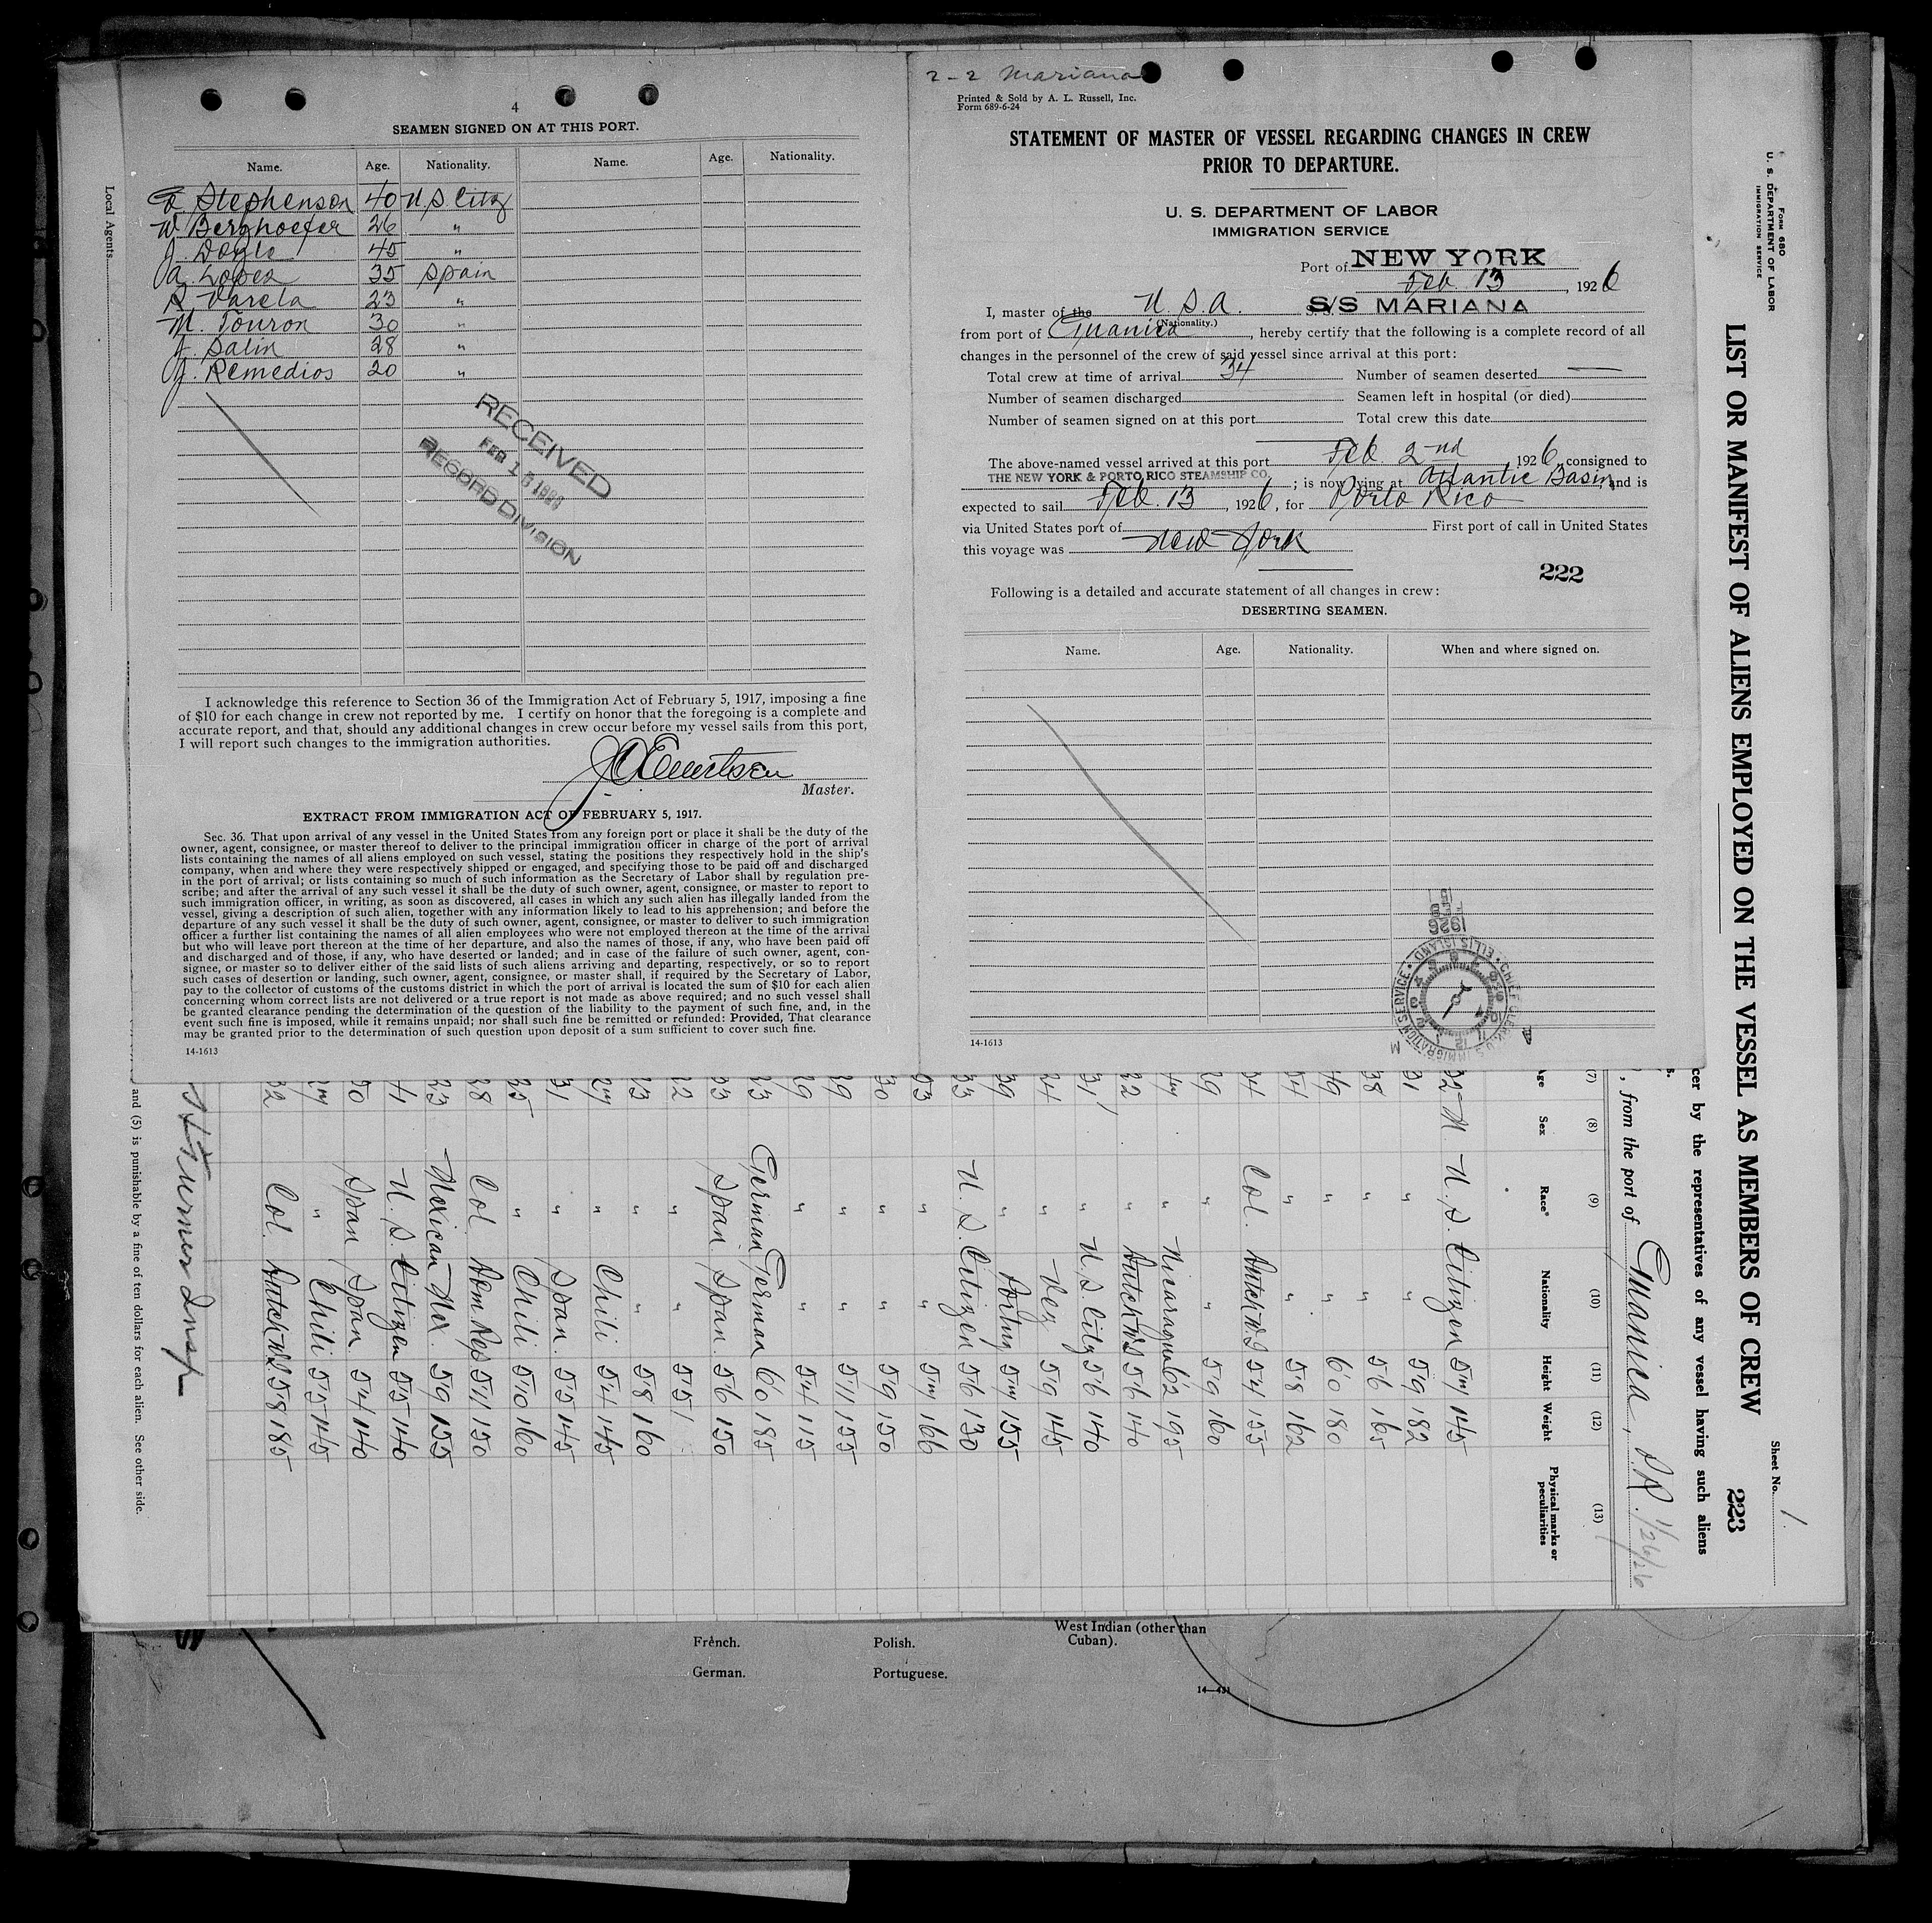 4
SEAMEN SIGNED ON AT THIS PORT.
Name. Age. Nationality. Name. Age. Nationality.
Stephenson 40 U S Citz
W. Berghoefer 26 "
J. Doyle 45 "
A. Lopez 35 Spain
R. Varela 23 "
M. Touron 30 "
J. Salin 28 "
J. Remedios 20 "
RECEIVED
FEB
RECORD DIVISION
Local Agents
I acknowledge this reference to Section 36 of the Immigration Act of February 5, 1917, imposing a fine
of $10 for each change in crew not reported by me. I certify on honor that the foregoing is a complete and
accurate report, and that, should any additional changes in crew occur before my vessel sails from this port,
I will report such changes to the immigration authorities.
Master.
EXTRACT FROM IMMIGRATION ACT OF FEBRUARY 5, 1917.
Sec. 36. That upon arrival of any vessel in the United States from any foreign port or place it shall be the duty of the
owner, agent, consignee, or master thereof to deliver to the principal immigration officer in charge of the port of arrival
lists containing the names of all aliens employed on such vessel, stating the positions they respectively hold in the ship's
company, when and where they were respectively shipped or engaged, and specifying those to be paid off and discharged
in the port of arrival; or lists containing so much of such information as the Secretary of Labor shall by regulation pre-
scribe; and after the arrival of any such vessel it shall be the duty of such owner, agent, consignee, or master to report to
such immigration officer, in writing, as soon as discovered, all cases in which any such alien has illegally landed from the
vessel, giving a description of such alien, together with any information likely to lead to his apprehension; and before the
departure of any such vessel it shall be the duty of such owner, agent, consignee, or master to deliver to such immigration
officer a further list containing the names of all alien employees who were not employed thereon at the time of the arrival
but who will leave port thereon at the time of her departure, and also the names of those, if any, who have been paid off
and discharged and of those, if any, who have deserted or landed; and in case of the failure of such owner, agent, con-
signee, or master so to deliver either of the said lists of such aliens arriving and departing, respectively, or so to report
such cases of desertion or landing, such owner, agent, consignee, or master shall, if required by the Secretary of Labor,
pay to the collector of customs of the customs district in which the port of arrival is located the sum of $10 for each alien
concerning whom correct lists are not delivered or a true report is not made as above required; and no such vessel shall
be granted clearance pending the determination of the question of the liability to the payment of such fine, and, in the
event such fine is imposed, while it remains unpaid; nor shall such fine be remitted or refunded: Provided, That clearance
may be granted prior to the determination of such question upon deposit of a sum sufficient to cover such fine.
14-1613
2-2 Mariana
Printed & Sold by A. L. Russell, Inc.
Form 689-6-24
STATEMENT OF MASTER OF VESSEL REGARDING CHANGES IN CREW
PRIOR TO DEPARTURE.
U. S. DEPARTMENT OF LABOR
IMMIGRATION SERVICE
Port of NEW YORK
Feb 13, 1926
I, master of the U.S.A. S/S MARIANA
(Nationality.)
from port of Guanica, hereby certify that the following is a complete record of all
changes in the personnel of the crew of said vessel since arrival at this port:
Total crew at time of arrival 34 Number of seamen deserted —
Number of seamen discharged Seamen left in hospital (or died)
Number of seamen signed on at this port Total crew this date
The above-named vessel arrived at this port Feb. 2nd 1926, consigned to
THE NEW YORK & PORTO RICO STEAMSHIP CO. ; is now lying at Atlantic Basin, and is
expected to sail Feb. 13, 1926, for Porto Rico
via United States port of First port of call in United States
this voyage was New York
222
Following is a detailed and accurate statement of all changes in crew:
DESERTING SEAMEN.
Name. Age. Nationality. When and where signed on.
1926
CHIEF CLERK, U.S. IMMIGRATION SERVICE • ELLIS ISLAND •
14-1613
Form 680
U. S. DEPARTMENT OF LABOR
IMMIGRATION SERVICE
Sheet No. 1
LIST OR MANIFEST OF ALIENS EMPLOYED ON THE VESSEL AS MEMBERS OF CREW 223
cer by the representatives of any vessel having such aliens
, from the port of Guanica, P.R. 1/26/26
(7) (8) (9) (10) (11) (12) (13)
Age Sex Race* Nationality Height Weight Physical marks or peculiarities
32 M U.S. Citizen 5 7 145
31 " " 5 9 182
38 " " 5 6 165
49 " " 6 0 180
54 " " 5 8 162
34 Col. Dutch W.I 5 4 155
29 " " 5 9 160
47 " Nicaragua 6 2 195
22 " Dutch WI 5 6 140
31 " U.S. Citz 5 6 140
24 " Vez 5 9 145
39 " Portug 5 7 155
33 U.S. Citizen 5 6 130
53 " " 5 7 166
30 " " 5 9 150
29 " " 5 11 155
29 " " 5 4 115
33 German German 6 0 185
33 Span. Span. 5 6 150
22 " " 5 5
23 " " 5 8 160
27 " Chili 5 4 145
31 " Span. 5 5 145
25 " Chili 5 10 160
28 Col. Dom. Rep 5 11 150
23 Mexican Mex. 5 9 155
41 U.S. Citizen 5 5 140
50 Span Span 5 4 140
27 " Chili 5 5 145
32 Col. Dutch WI 5 8 185
Turner Insp
and (5) is punishable by a fine of ten dollars for each alien. See other side.
French. Polish. West Indian (other than
Cuban).
German. Portuguese.
14—431